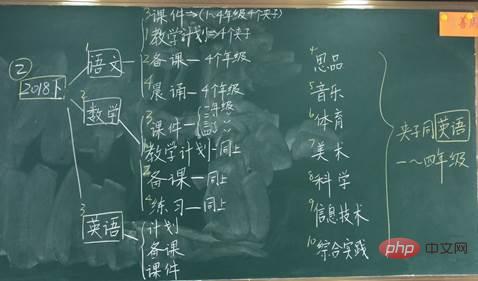 ②
2018下
1 语文
3 课件⇒(1~4年级4个夹子)
1 教学计划⇒4个夹子
2 备课—4个年级
4 晨诵—4个年级
2 数学
3 课件
二年级
三 〃
1 教学计划—同上
2 备课—同上
4 练习—同上
3 英语
计划
备课
课件
4 思品
5 音乐
6 体育
7 美术
8 科学
9 信息技术
10 综合实践
夹子同英语
一~四年级
php 中文网